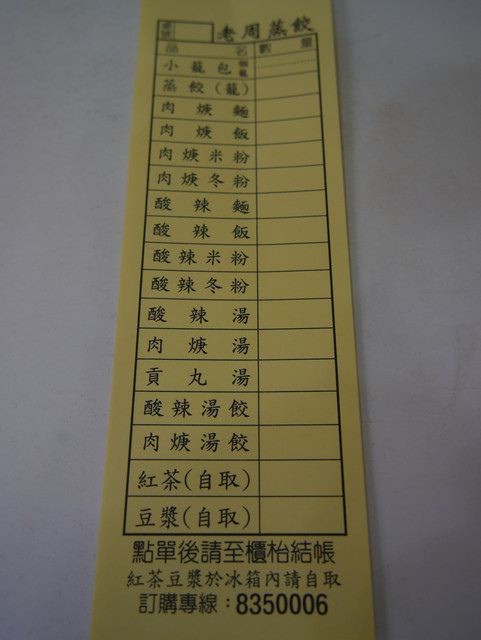 桌號 老周蒸餃
品名 數量
小籠包 個籠
蒸餃(籠)
肉焿麵
肉焿飯
肉焿米粉
肉焿冬粉
酸辣麵
酸辣飯
酸辣米粉
酸辣冬粉
酸辣湯
肉焿湯
貢丸湯
酸辣湯餃
肉焿湯餃
紅茶(自取)
豆漿(自取)
點單後請至櫃枱結帳
紅茶豆漿於冰箱內請自取
訂購專線：8350006